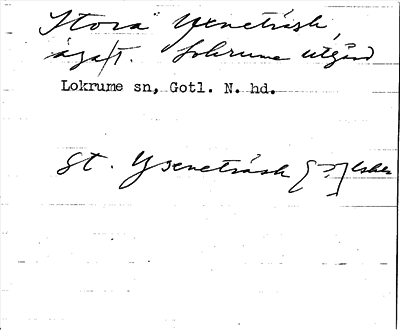 Stora Yxneträsk,
ägofl. Lokrume utgård
Lokrume sn, Gotl. N. hd.
St. Yxneträsk [?]